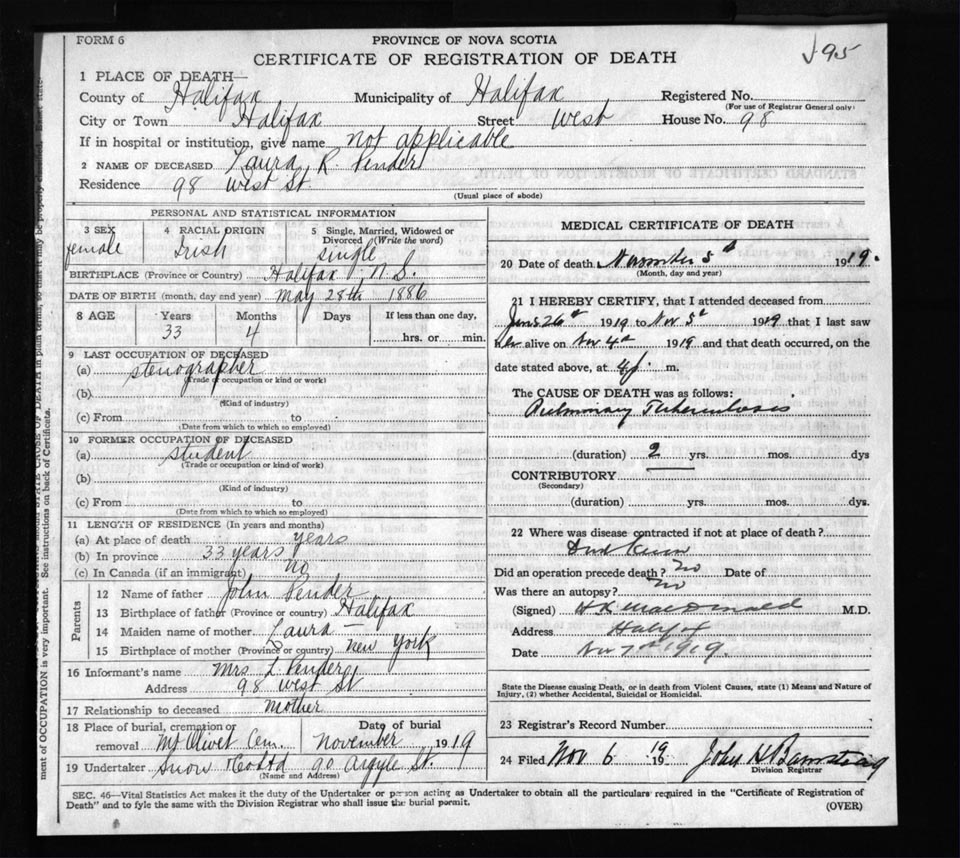 FORM 6
PROVINCE OF NOVA SCOTIA
CERTIFICATE OF REGISTRATION OF DEATH
95
1 PLACE OF DEATH—
County of Halifax Municipality of Halifax Registered No.
(For use of Registrar General only)
City or Town Halifax Street West House No. 98
If in hospital or institution, give name not applicable
2 NAME OF DECEASED Laura R. Pender
Residence 98 West St
(Usual place of abode)
PERSONAL AND STATISTICAL INFORMATION
3 SEX female
4 RACIAL ORIGIN Irish
5 Single, Married, Widowed or Divorced (Write the word) single
BIRTHPLACE (Province or Country) Halifax N.S.
DATE OF BIRTH (month, day and year) May 28th 1886
8 AGE Years Months Days If less than one day,
33 4 hrs. or min.
9 LAST OCCUPATION OF DECEASED
(a) stenographer
(Trade or occupation or kind or work)
(b)
(Kind of industry)
(c) From to
(Date from which to which so employed)
10 FORMER OCCUPATION OF DECEASED
(a) student
(Trade or occupation or kind of work)
(b)
(Kind of industry)
(c) From to
(Date from which to which so employed)
11 LENGTH OF RESIDENCE (In years and months)
(a) At place of death years
(b) In province 33 years
(c) In Canada (if an immigrant) no
Parents
12 Name of father John Pender
13 Birthplace of father (Province or country) Halifax
14 Maiden name of mother Laura —
15 Birthplace of mother (Province or country) New York
16 Informant's name Mrs L. Pender
Address 98 West St
17 Relationship to deceased Mother
18 Place of burial, cremation or Date of burial
removal Mt Olivet Cem. November 1919
19 Undertaker Snow & Co Ltd 90 Argyle St.
(Name and Address)
MEDICAL CERTIFICATE OF DEATH
20 Date of death November 5th 1919.
(Month, day and year)
21 I HEREBY CERTIFY, that I attended deceased from
June 26th 1919 to Nov 5th 1919 that I last saw
her alive on Nov 4th 1919 and that death occurred, on the
date stated above, at m.
The CAUSE OF DEATH was as follows:
Pulmonary Tuberculosis
(duration) 2 yrs. mos. dys
CONTRIBUTORY
(Secondary)
(duration) yrs. mos. dys.
22 Where was disease contracted if not at place of death?
Did an operation precede death? No Date of
Was there an autopsy? No
(Signed) MacDonald M.D.
Address Halifax
Date Nov 7th 1919.
State the Disease causing Death, or in death from Violent Causes, state (1) Means and Nature of
Injury, (2) whether Accidental, Suicidal or Homicidal.
23 Registrar's Record Number
24 Filed Nov 6 1919 John H Barnstead
Division Registrar
SEC. 46—Vital Statistics Act makes it the duty of the Undertaker or person acting as Undertaker to obtain all the particulars required in the "Certificate of Registration of
Death" and to fyle the same with the Division Registrar who shall issue the burial permit.
(OVER)
ment of OCCUPATION is very important. See instructions on back of Certificates.